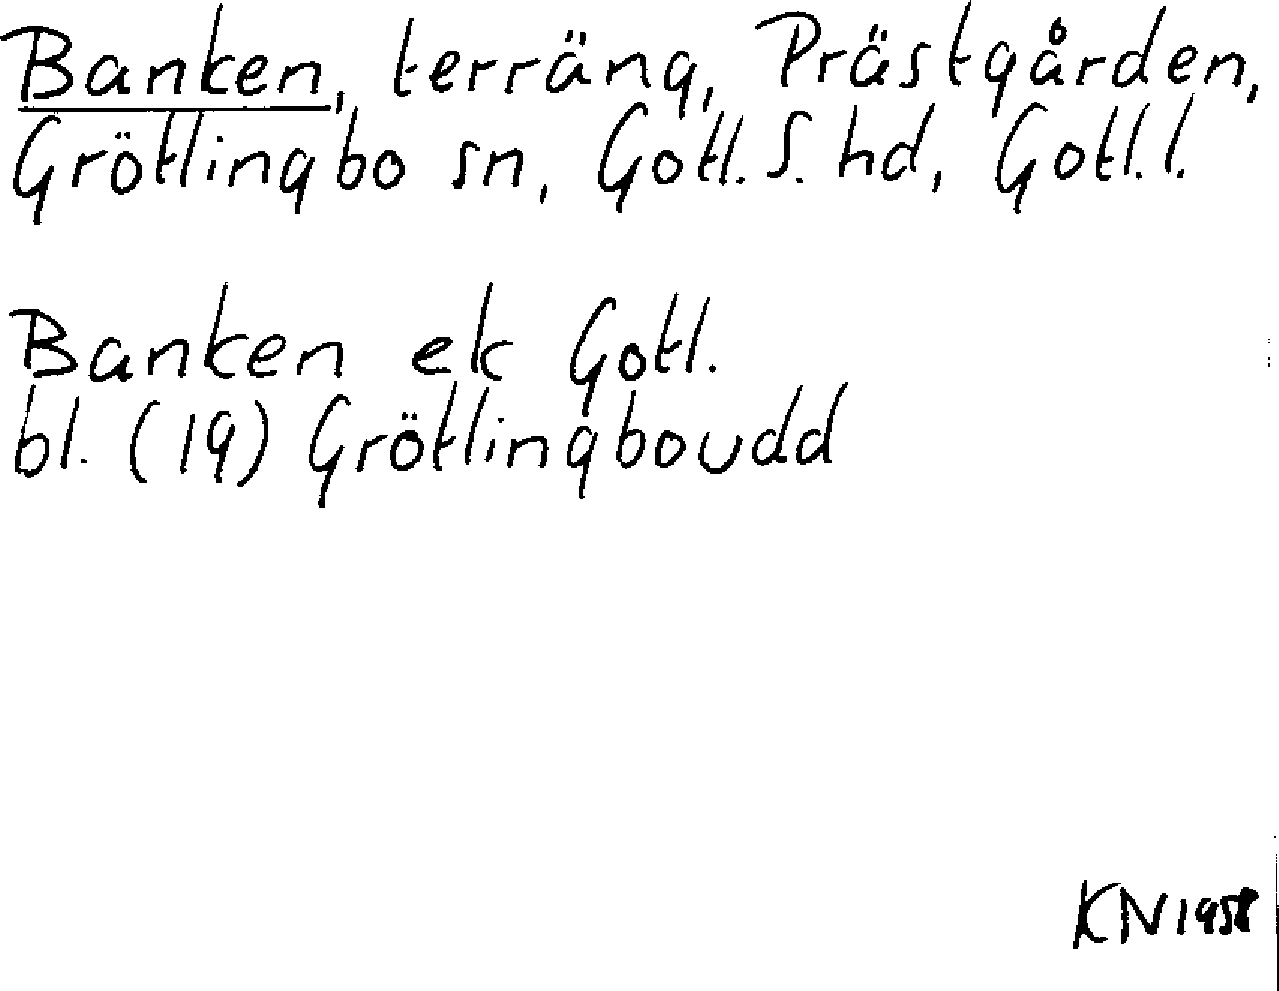 Banken, terräng, Prästgården,
Grötlingbo sn, Gotl. S. hd, Gotl. l.
Banken ek Gotl.
bl. (19) Grötlingboudd
KN 1958